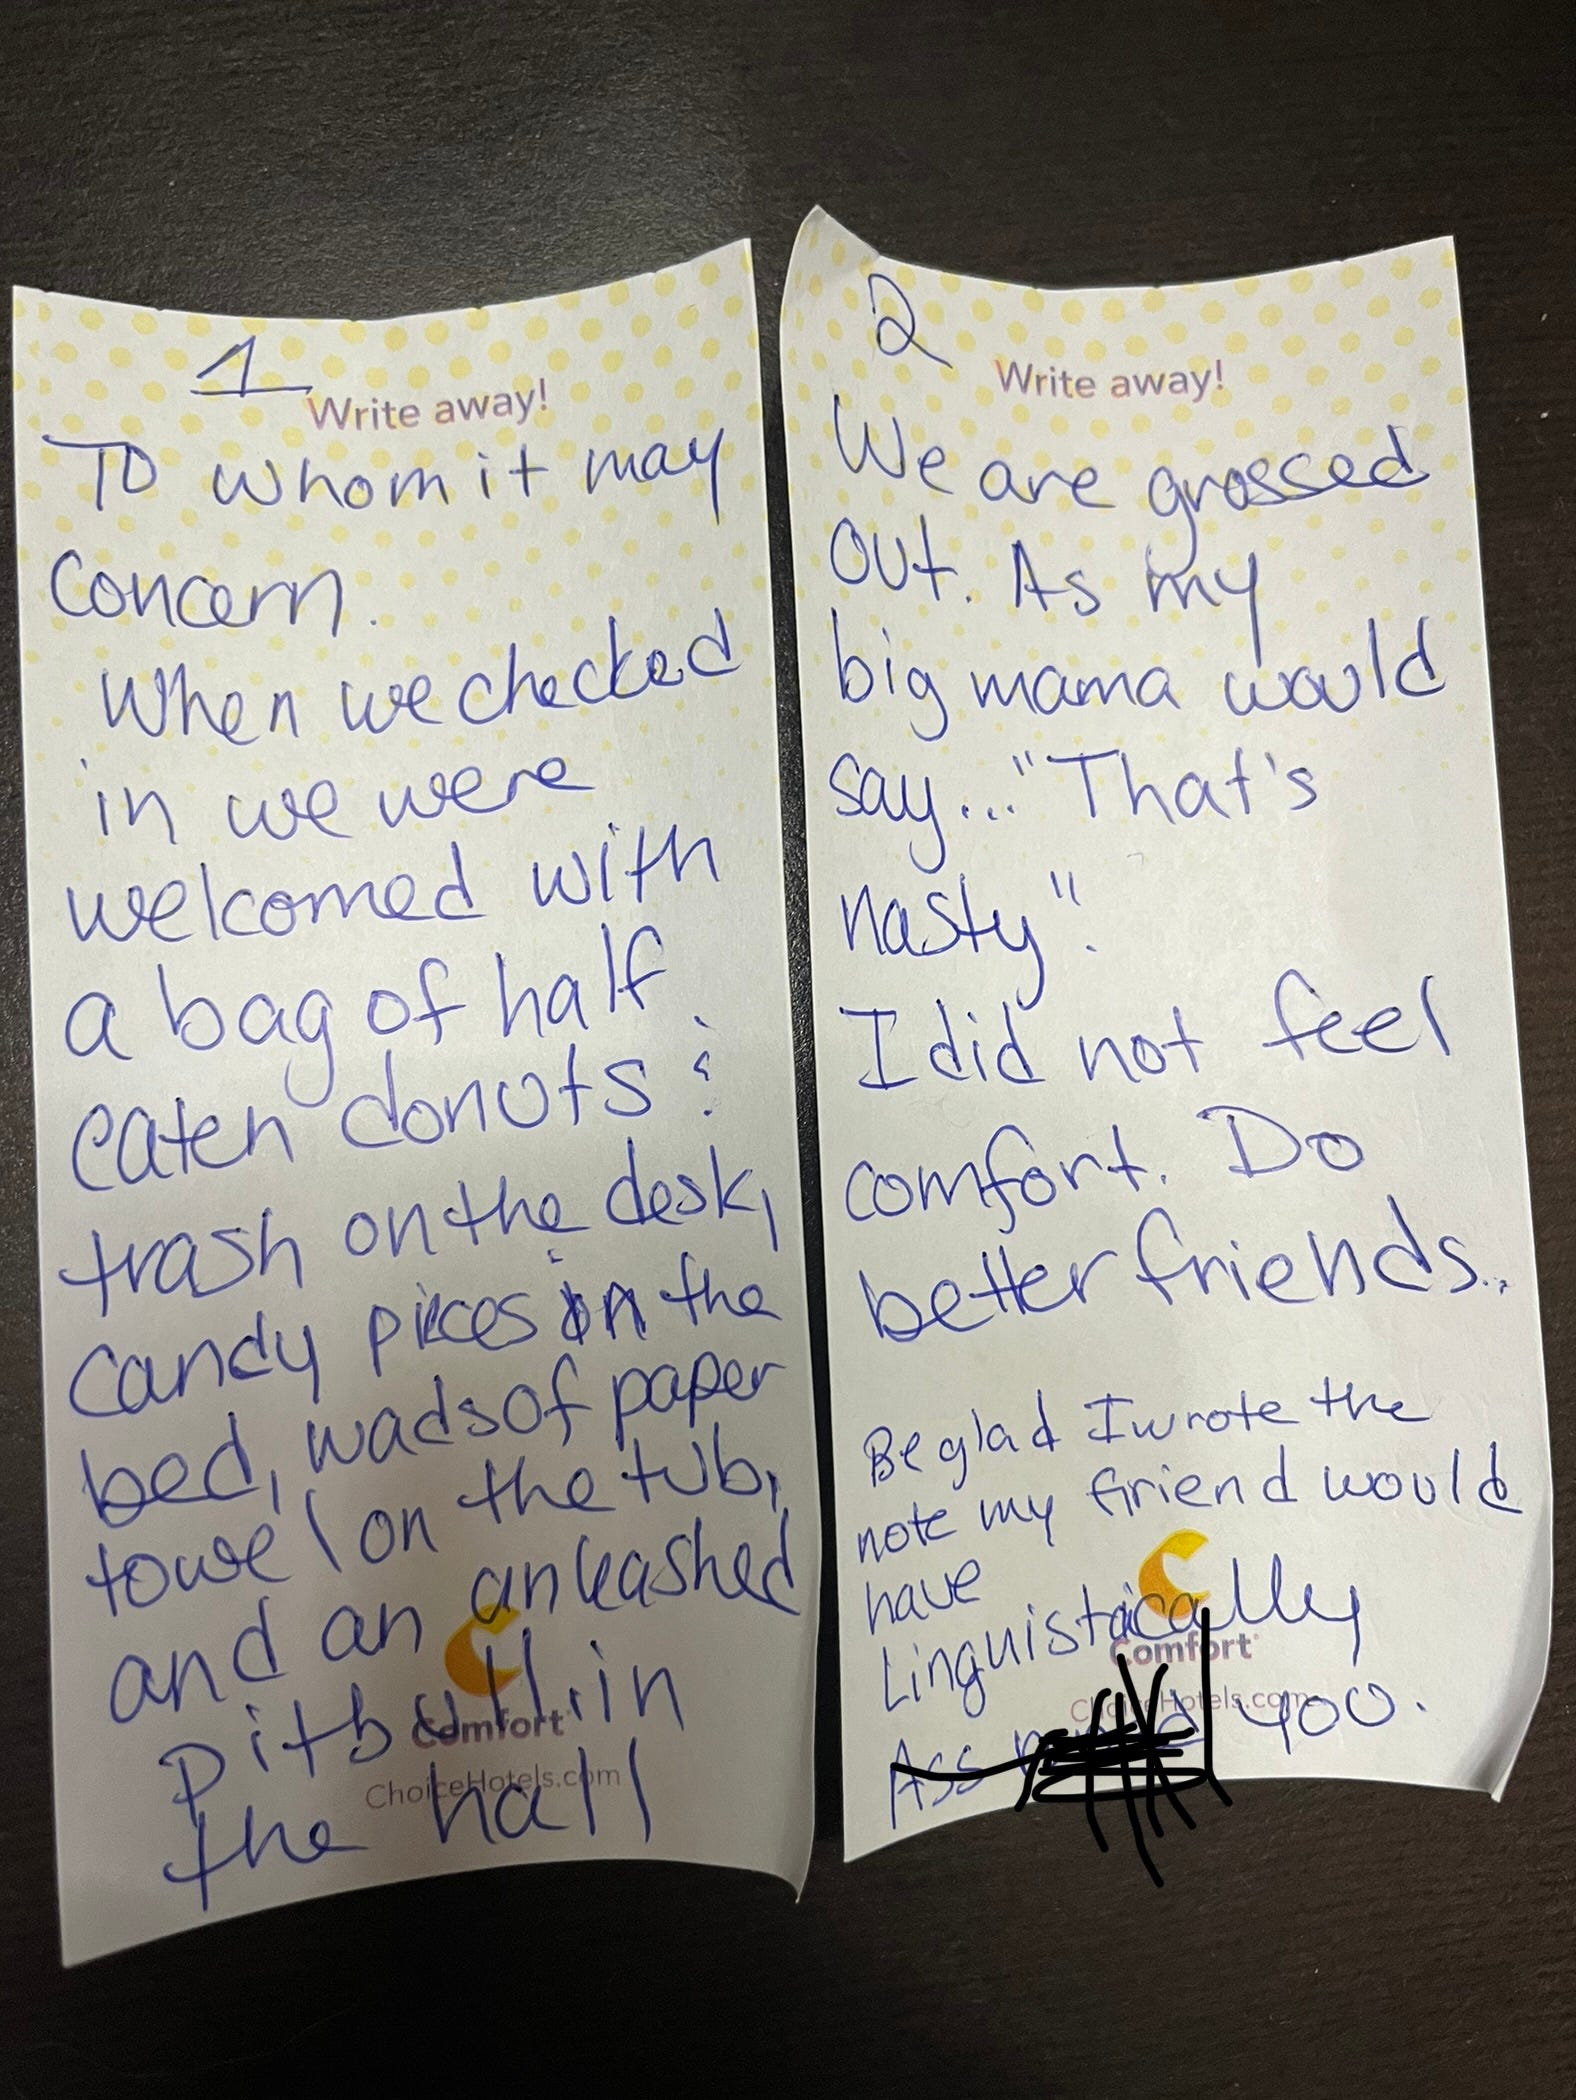 1
Write away!
To whom it may
Concern.
When we checked
in we were
welcomed with
a bag of half
eaten donuts &
trash on the desk,
candy pieces in the
bed, wads of paper
towel on the tub,
and an unleashed
Pitbull in
the hall
Comfort
ChoiceHotels.com
2
Write away!
We are grossed
out. As my
big mama would
say..."That's
nasty".
I did not feel
comfort. Do
better friends...
Be glad I wrote the
note my friend would
have
Linguistically
Ass you.
Comfort
ChoiceHotels.com